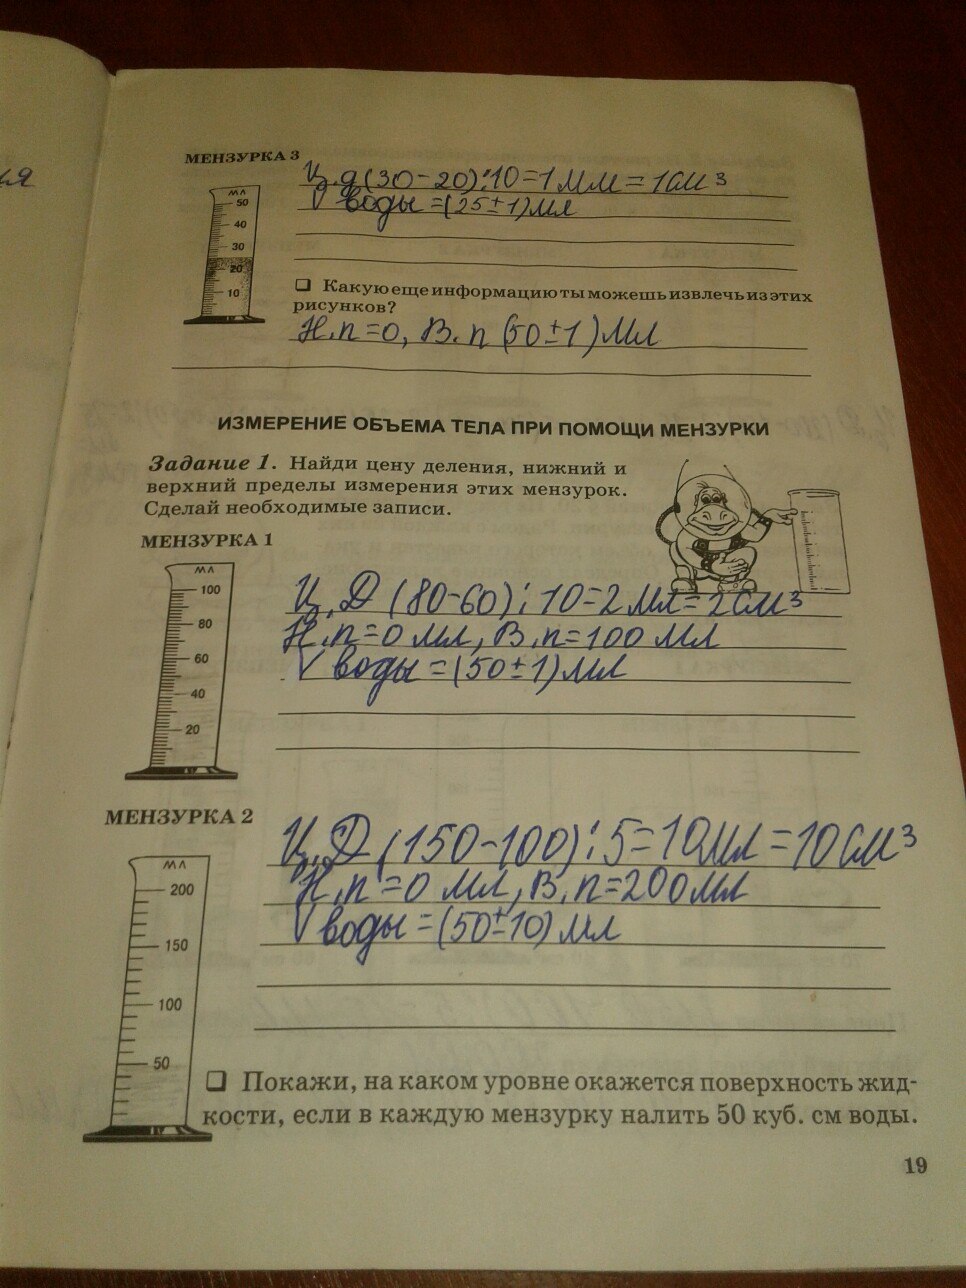 ия
МЕНЗУРКА 3
Ц.д(30-20):10=1мм=1см³
V воды =(25±1)мл
мл
50
40
30
20
10
❑ Какую еще информацию ты можешь извлечь из этих
рисунков?
Н.п=0, В.п (50±1)мл
ИЗМЕРЕНИЕ ОБЪЕМА ТЕЛА ПРИ ПОМОЩИ МЕНЗУРКИ
Задание 1. Найди цену деления, нижний и
верхний пределы измерения этих мензурок.
Сделай необходимые записи.
МЕНЗУРКА 1
мл
100
80
60
40
20
Ц.Д (80-60):10=2мл=2см³
Н.п=0 мл, В.п=100 мл
V воды =(50±1)мл
МЕНЗУРКА 2
мл
200
150
100
50
Ц.Д (150-100):5=10мл=10см³
Н.п=0 мл, В.п=200мл
V воды =(50±10)мл
❑ Покажи, на каком уровне окажется поверхность жид-
кости, если в каждую мензурку налить 50 куб. см воды.
19